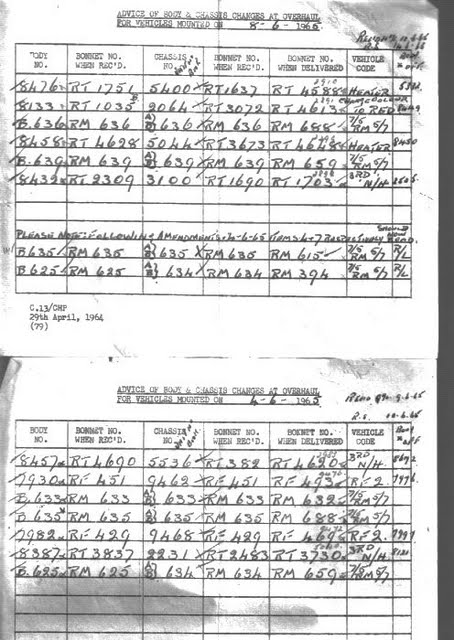 ADVICE OF BODY & CHASSIS CHANGES AT OVERHAUL
FOR VEHICLES MOUNTED ON 8-6-1965
BODY NO. BONNET NO. WHEN REC'D. CHASSIS NO. BONNET NO. WHEN REC'D. BONNET NO. WHEN DELIVERED VEHICLE CODE
8476 RT 1751 5400 RT 1637 RT 4588 HEATER
8133 RT 1035 2064 RT 3072 RT 4613 TO RED
B.636 RM 636 636 RM 636 RM 688 7/5 RM 5/7
8458 RT 4628 5044 RT 3673 RT 4648 HEATER 8450
B.639 RM 639 639 RM 639 RM 659 7/5 RM 5/7
8432 RT 2309 3100 RT 1690 RT 1703 3RD N/H
PLEASE NOTE: FOLLOWING AMENDMENTS 4-6-65 ITEMS 4 & 7 RESPECTIVELY SHOULD NOW READ.
B.635 RM 635 635 RM 635 RM 615 7/5 RM 5/7 R/L
B.625 RM 625 634 RM 634 RM 394 7/5 RM 5/7 R/L
C.13/CHP
29th April, 1964
(79)
ADVICE OF BODY & CHASSIS CHANGES AT OVERHAUL
FOR VEHICLES MOUNTED ON 4-6-1965
BODY NO. BONNET NO. WHEN REC'D. CHASSIS NO. BONNET NO. WHEN REC'D. BONNET NO. WHEN DELIVERED VEHICLE CODE
8457 RT 4690 5536 RT 382 RT 4620 3RD N/H
7930 RF 451 9462 RF 451 RF 493 RF 2. 7976
B.633 RM 633 633 RM 633 RM 632 7/5 RM 5/7
B.635 RM 635 635 RM 635 RM 688 7/5 RM 5/7
7982 RF 429 9468 RF 429 RF 469 RF 2.
8387 RT 3837 2231 RT 2483 RT 3730 3RD N/H
B.625 RM 625 634 RM 634 RM 659 7/5 RM 5/7